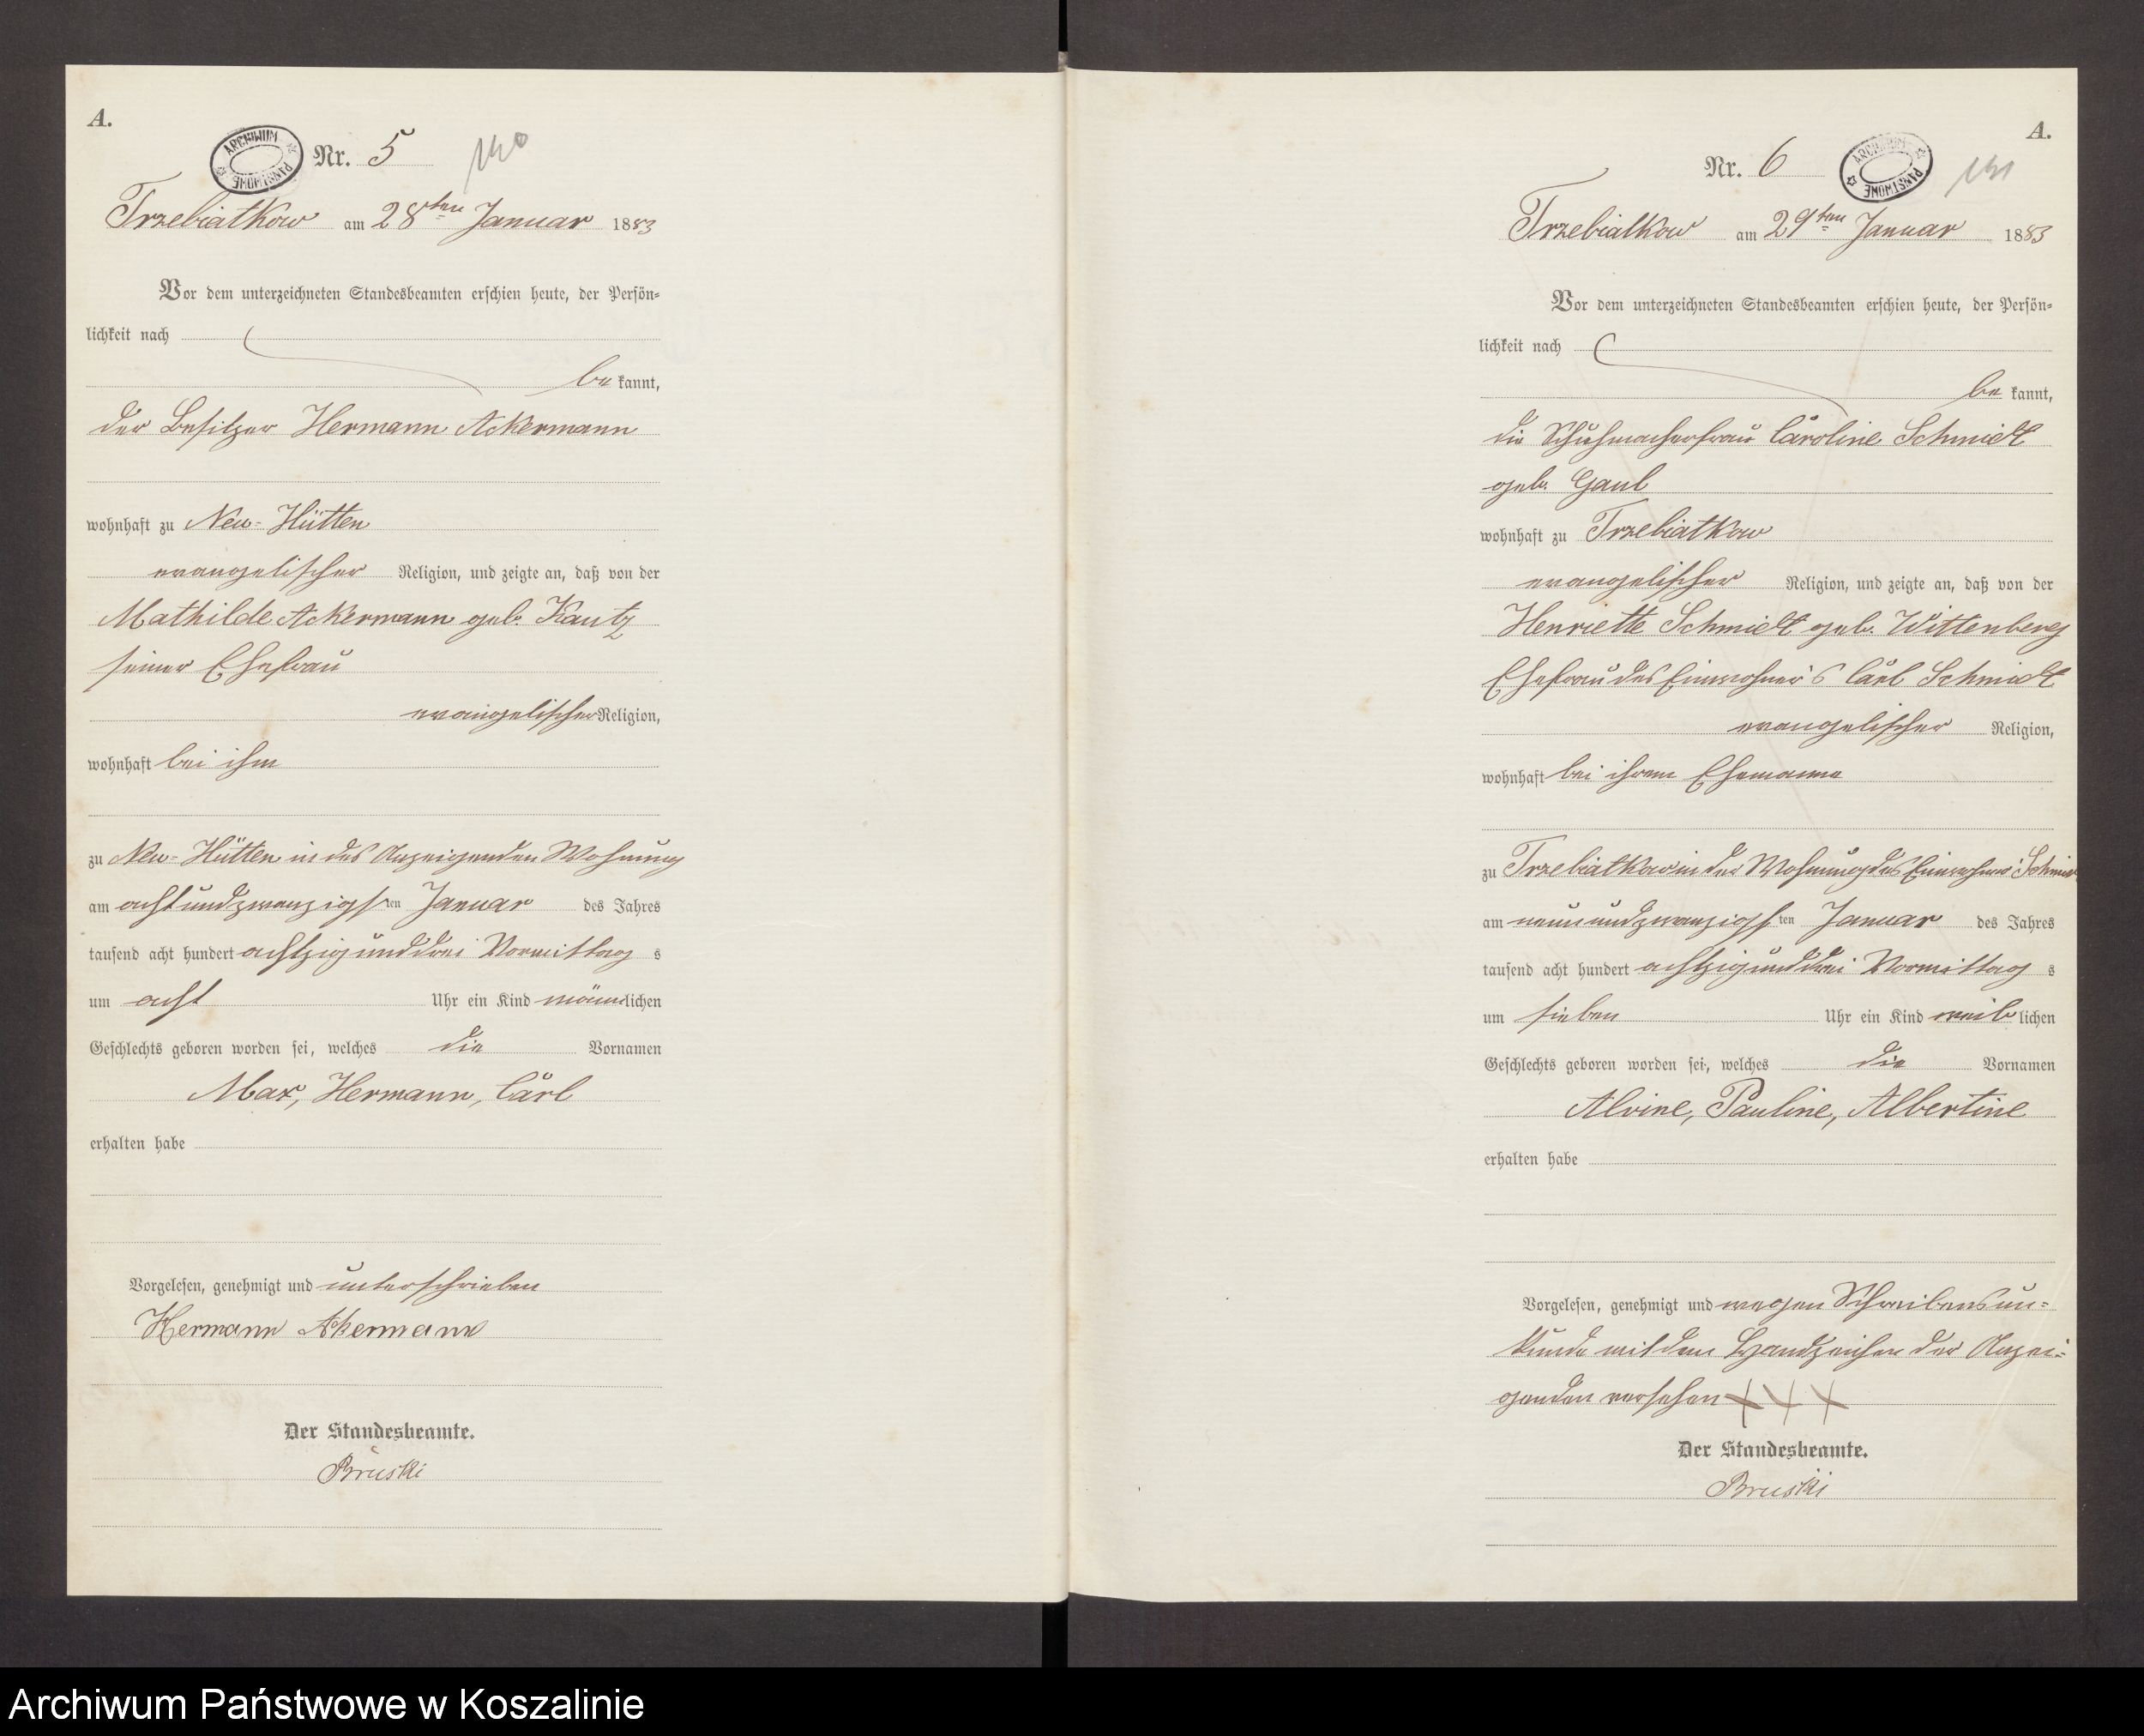 A.
ARCHIWUM PAŃSTWOWE
Nr. 5
140
Trzebiatkow am 28ten Januar 1883
Vor dem unterzeichneten Standesbeamten erschien heute, der Persön-
lichkeit nach
be kannt,
der Besitzer Hermann Ackermann
wohnhaft zu Neu-Hütten
evangelischer Religion, und zeigte an, daß von der
Mathilde Ackermann geb. Kautz
seiner Ehefrau
evangelischer Religion,
wohnhaft bei ihm
zu Neu-Hütten in des Anzeigenden Wohnung
am achtundzwanzigsten Januar des Jahres
tausend acht hundert achtzig und drei Vormittag s
um acht Uhr ein Kind männlichen
Geschlechts geboren worden sei, welches die Vornamen
Max, Hermann, Carl
erhalten habe
Vorgelesen, genehmigt und unterschrieben
Hermann Akermann
Der Standesbeamte.
Bruski
A.
Nr. 6
ARCHIWUM PAŃSTWOWE
141
Trzebiatkow am 29ten Januar 1883
Vor dem unterzeichneten Standesbeamten erschien heute, der Persön-
lichkeit nach
be kannt,
die Schuhmacherfrau Caroline Schmidt
geb. Gaul
wohnhaft zu Trzebiatkow
evangelischer Religion, und zeigte an, daß von der
Henriette Schmidt geb. Wittenberg
Ehefrau des Einwohner's Carl Schmidt
evangelischer Religion,
wohnhaft bei ihrem Ehemanne
zu Trzebiatkow in der Wohnung des Einwohners Schmid
am neunundzwanzigsten Januar des Jahres
tausend acht hundert achtzig und drei Vormittag s
um sieben Uhr ein Kind weiblichen
Geschlechts geboren worden sei, welches die Vornamen
Alvine, Pauline, Albertine
erhalten habe
Vorgelesen, genehmigt und wegen Schreibensun-
kunde mit dem Handzeichen der Anzei-
genden versehen + + +
Der Standesbeamte.
Bruski
Archiwum Państwowe w Koszalinie